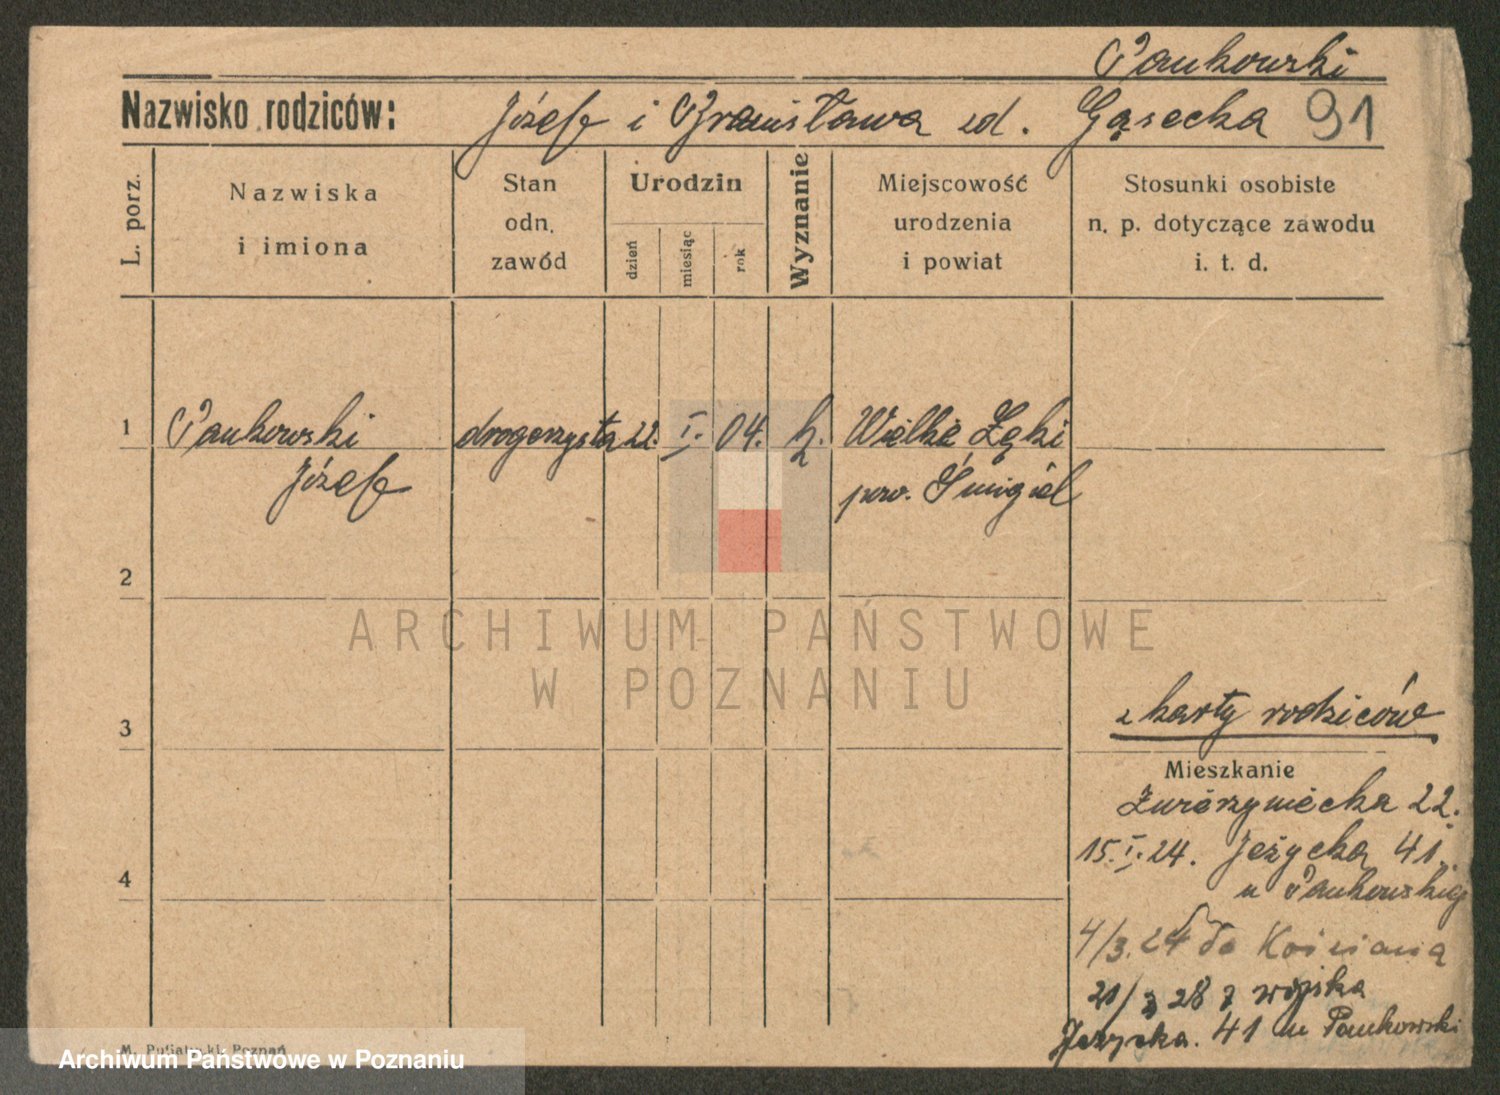 Pankowski
Nazwisko rodziców: Józef i Bronisława zd. Gąsecka 91
L. porz.
Nazwiska
i imiona
Stan
odn.
zawód
Urodzin
dzień
miesiąc
rok
Wyznanie
Miejscowość
urodzenia
i powiat
Stosunki osobiste
n. p. dotyczące zawodu
i. t. d.
1 Pankowski drogerzysta 22. I. 04. k. Wielkie Łęki
Józef pow. Śmigiel
2
ARCHIWUM PAŃSTWOWE
W POZNANIU
z karty rodziców
3
Mieszkanie
Zwierzyniecka 22.
15.I.24. Jeżycka 41.
4
u Pankowskiej
4/3.24 do Kościana
21/3 28 z wojska
Jeżycka. 41 u Pankowski
M. Putiatycki, Poznań
Archiwum Państwowe w Poznaniu